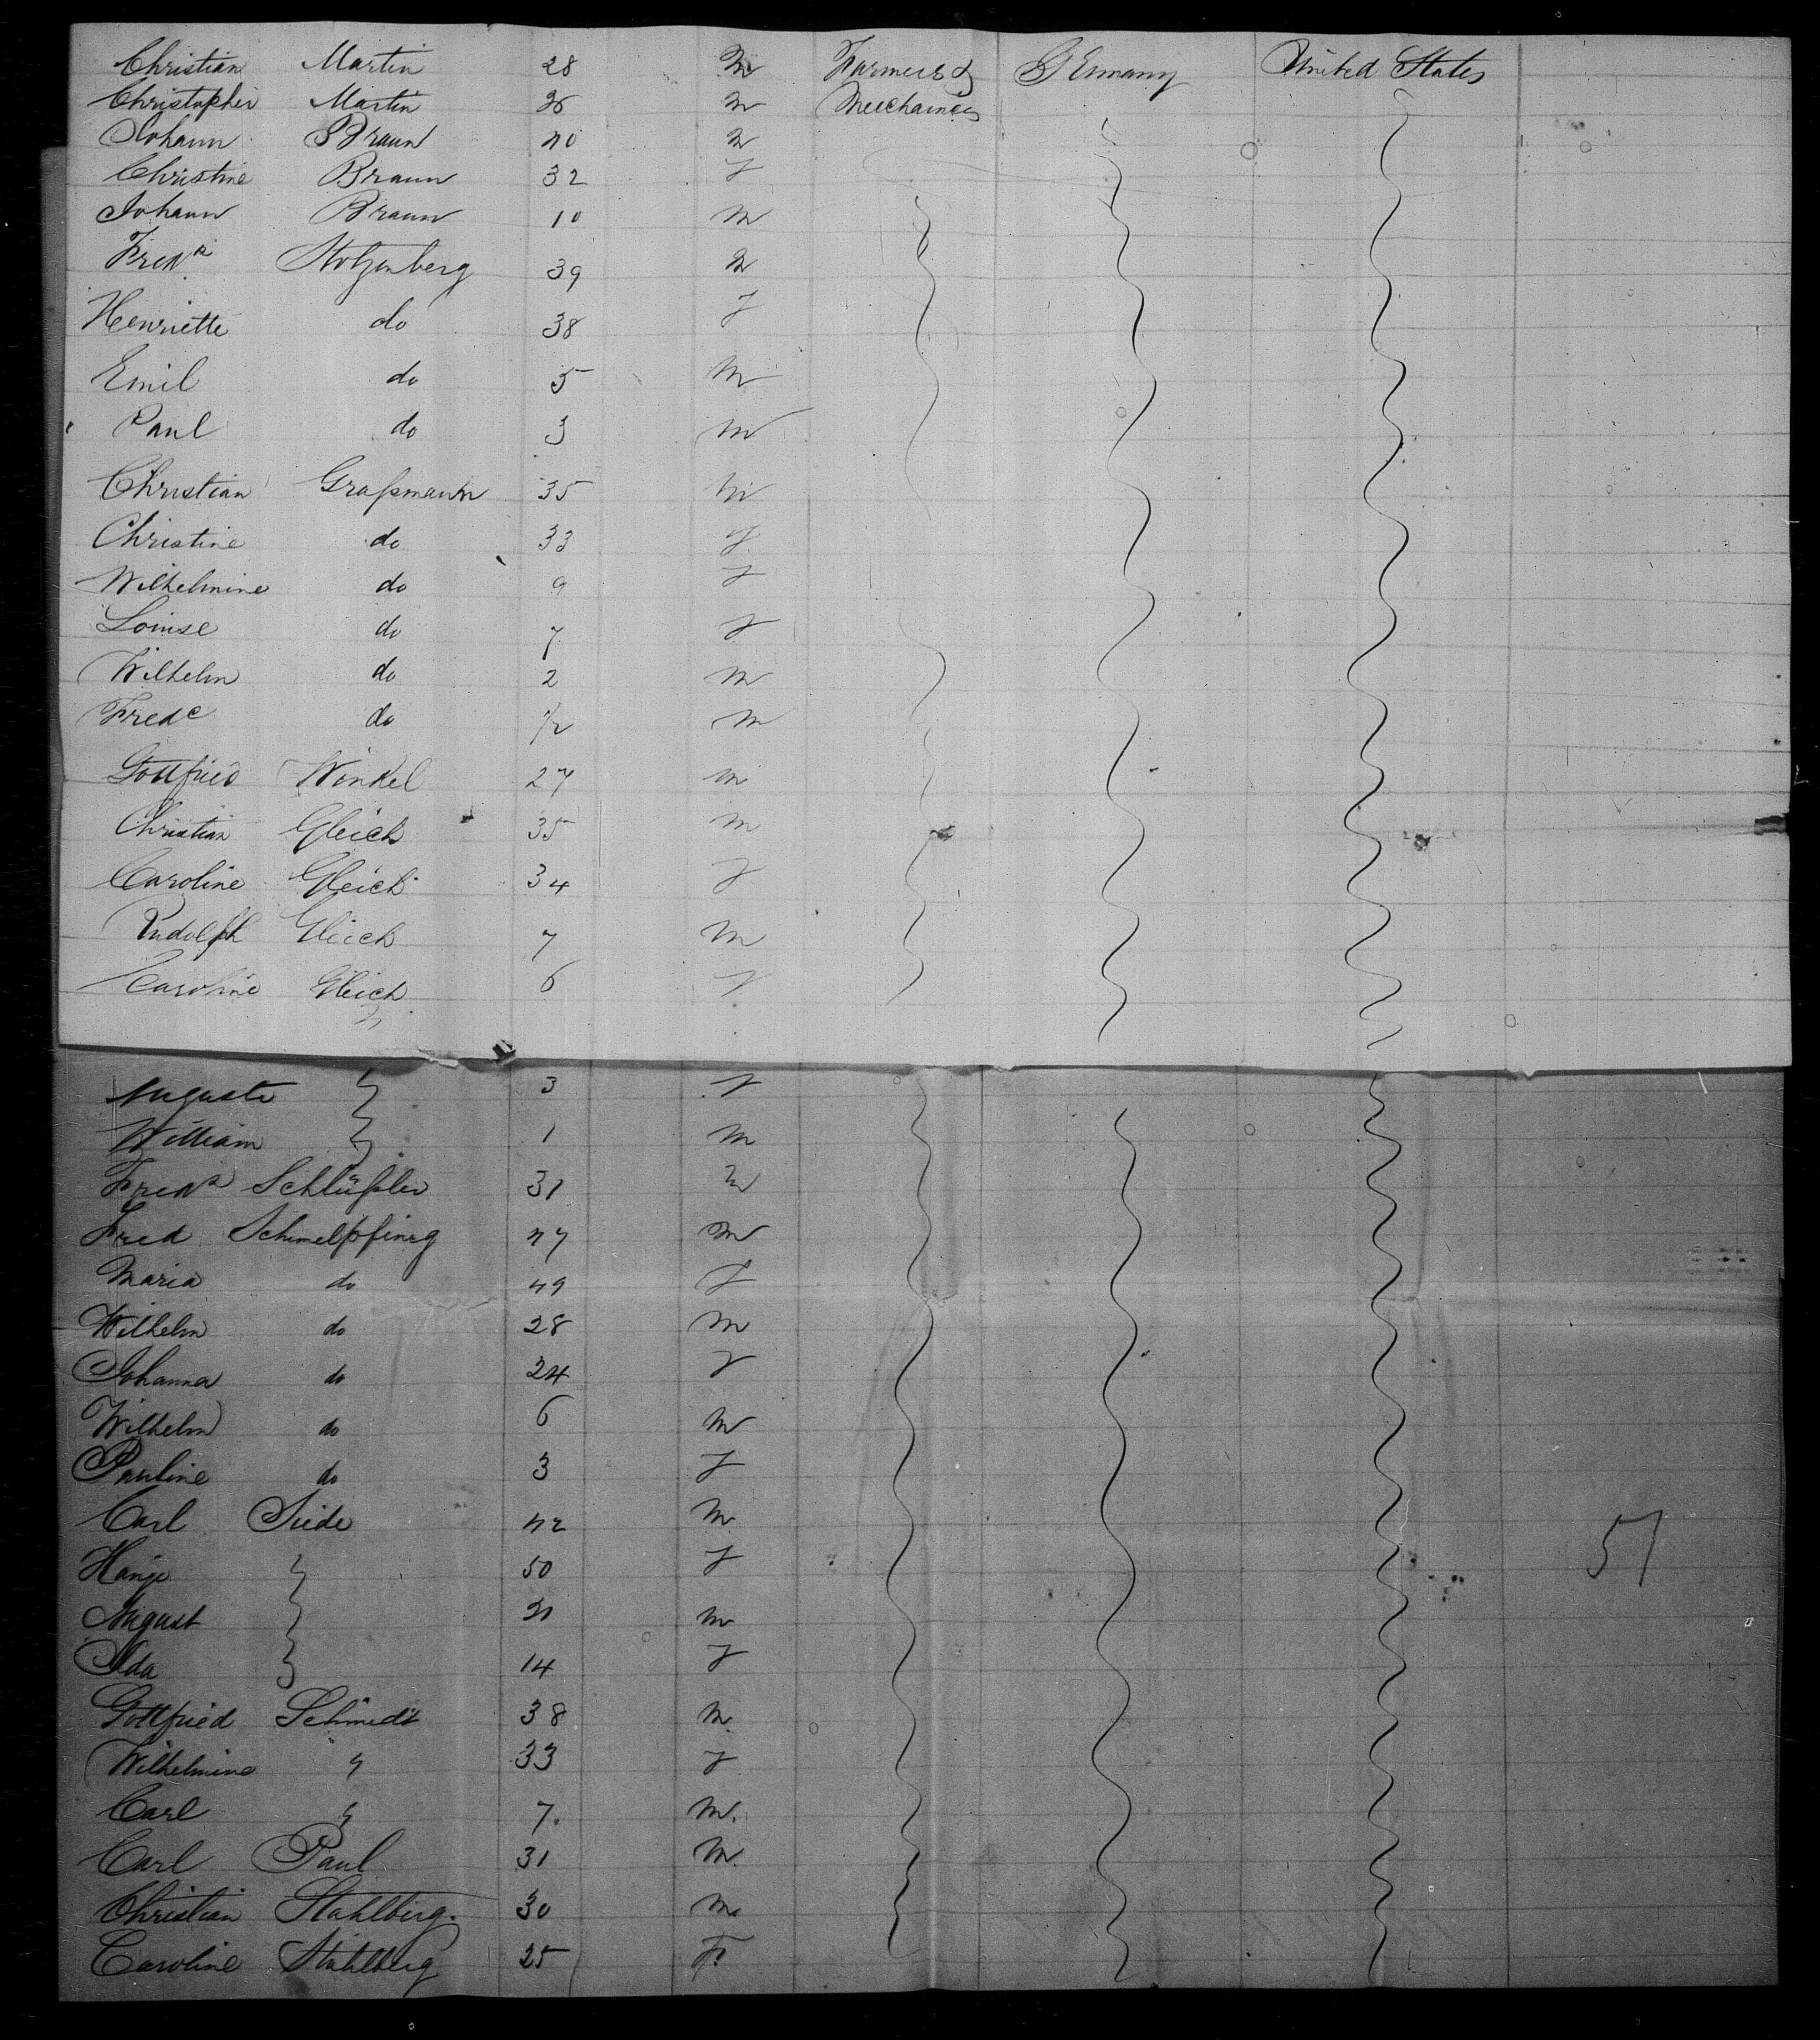 Christian Martin 28 M Farmers & Germany United States
Christopher Martin 26 M Mechanics
Johann Braun 40 M
Christine Braun 32 F
Johann Braun 10 M
Fredk Stolzenberg 39 M
Henriette do 38 F
Emil do 5 M
Paul do 3 M
Christian Graßmann 35 M
Christine do 33 F
Wilhelmine do 9 F
Louise do 7 F
Wilhelm do 2 M
Fredc do 1/2 M
Gottfried Winkel 27 M
Christian Gleich 35 M
Caroline Gleich 34 F
Rudolph Gleich 7 M
Caroline Gleich 6 F
Auguste " 3 F
William " 1 M
Fredk Schlüßler 31 M
Fred Schmelpfinig 47 M
Maria do 49 F
Wilhelm do 28 M
Johanna do 24 F
Wilhelm do 6 M
Pauline do 3 F
Carl Siede 42 M
50 F 51
August " 21 M
Ida " 14 F
Gottfried Schmidt 38 M
Wilhelmine " 33 F
Carl " 7. M.
Carl Paul 31 M.
Christian Stahlberg. 30 M.
Caroline Stahlberg 25 F.